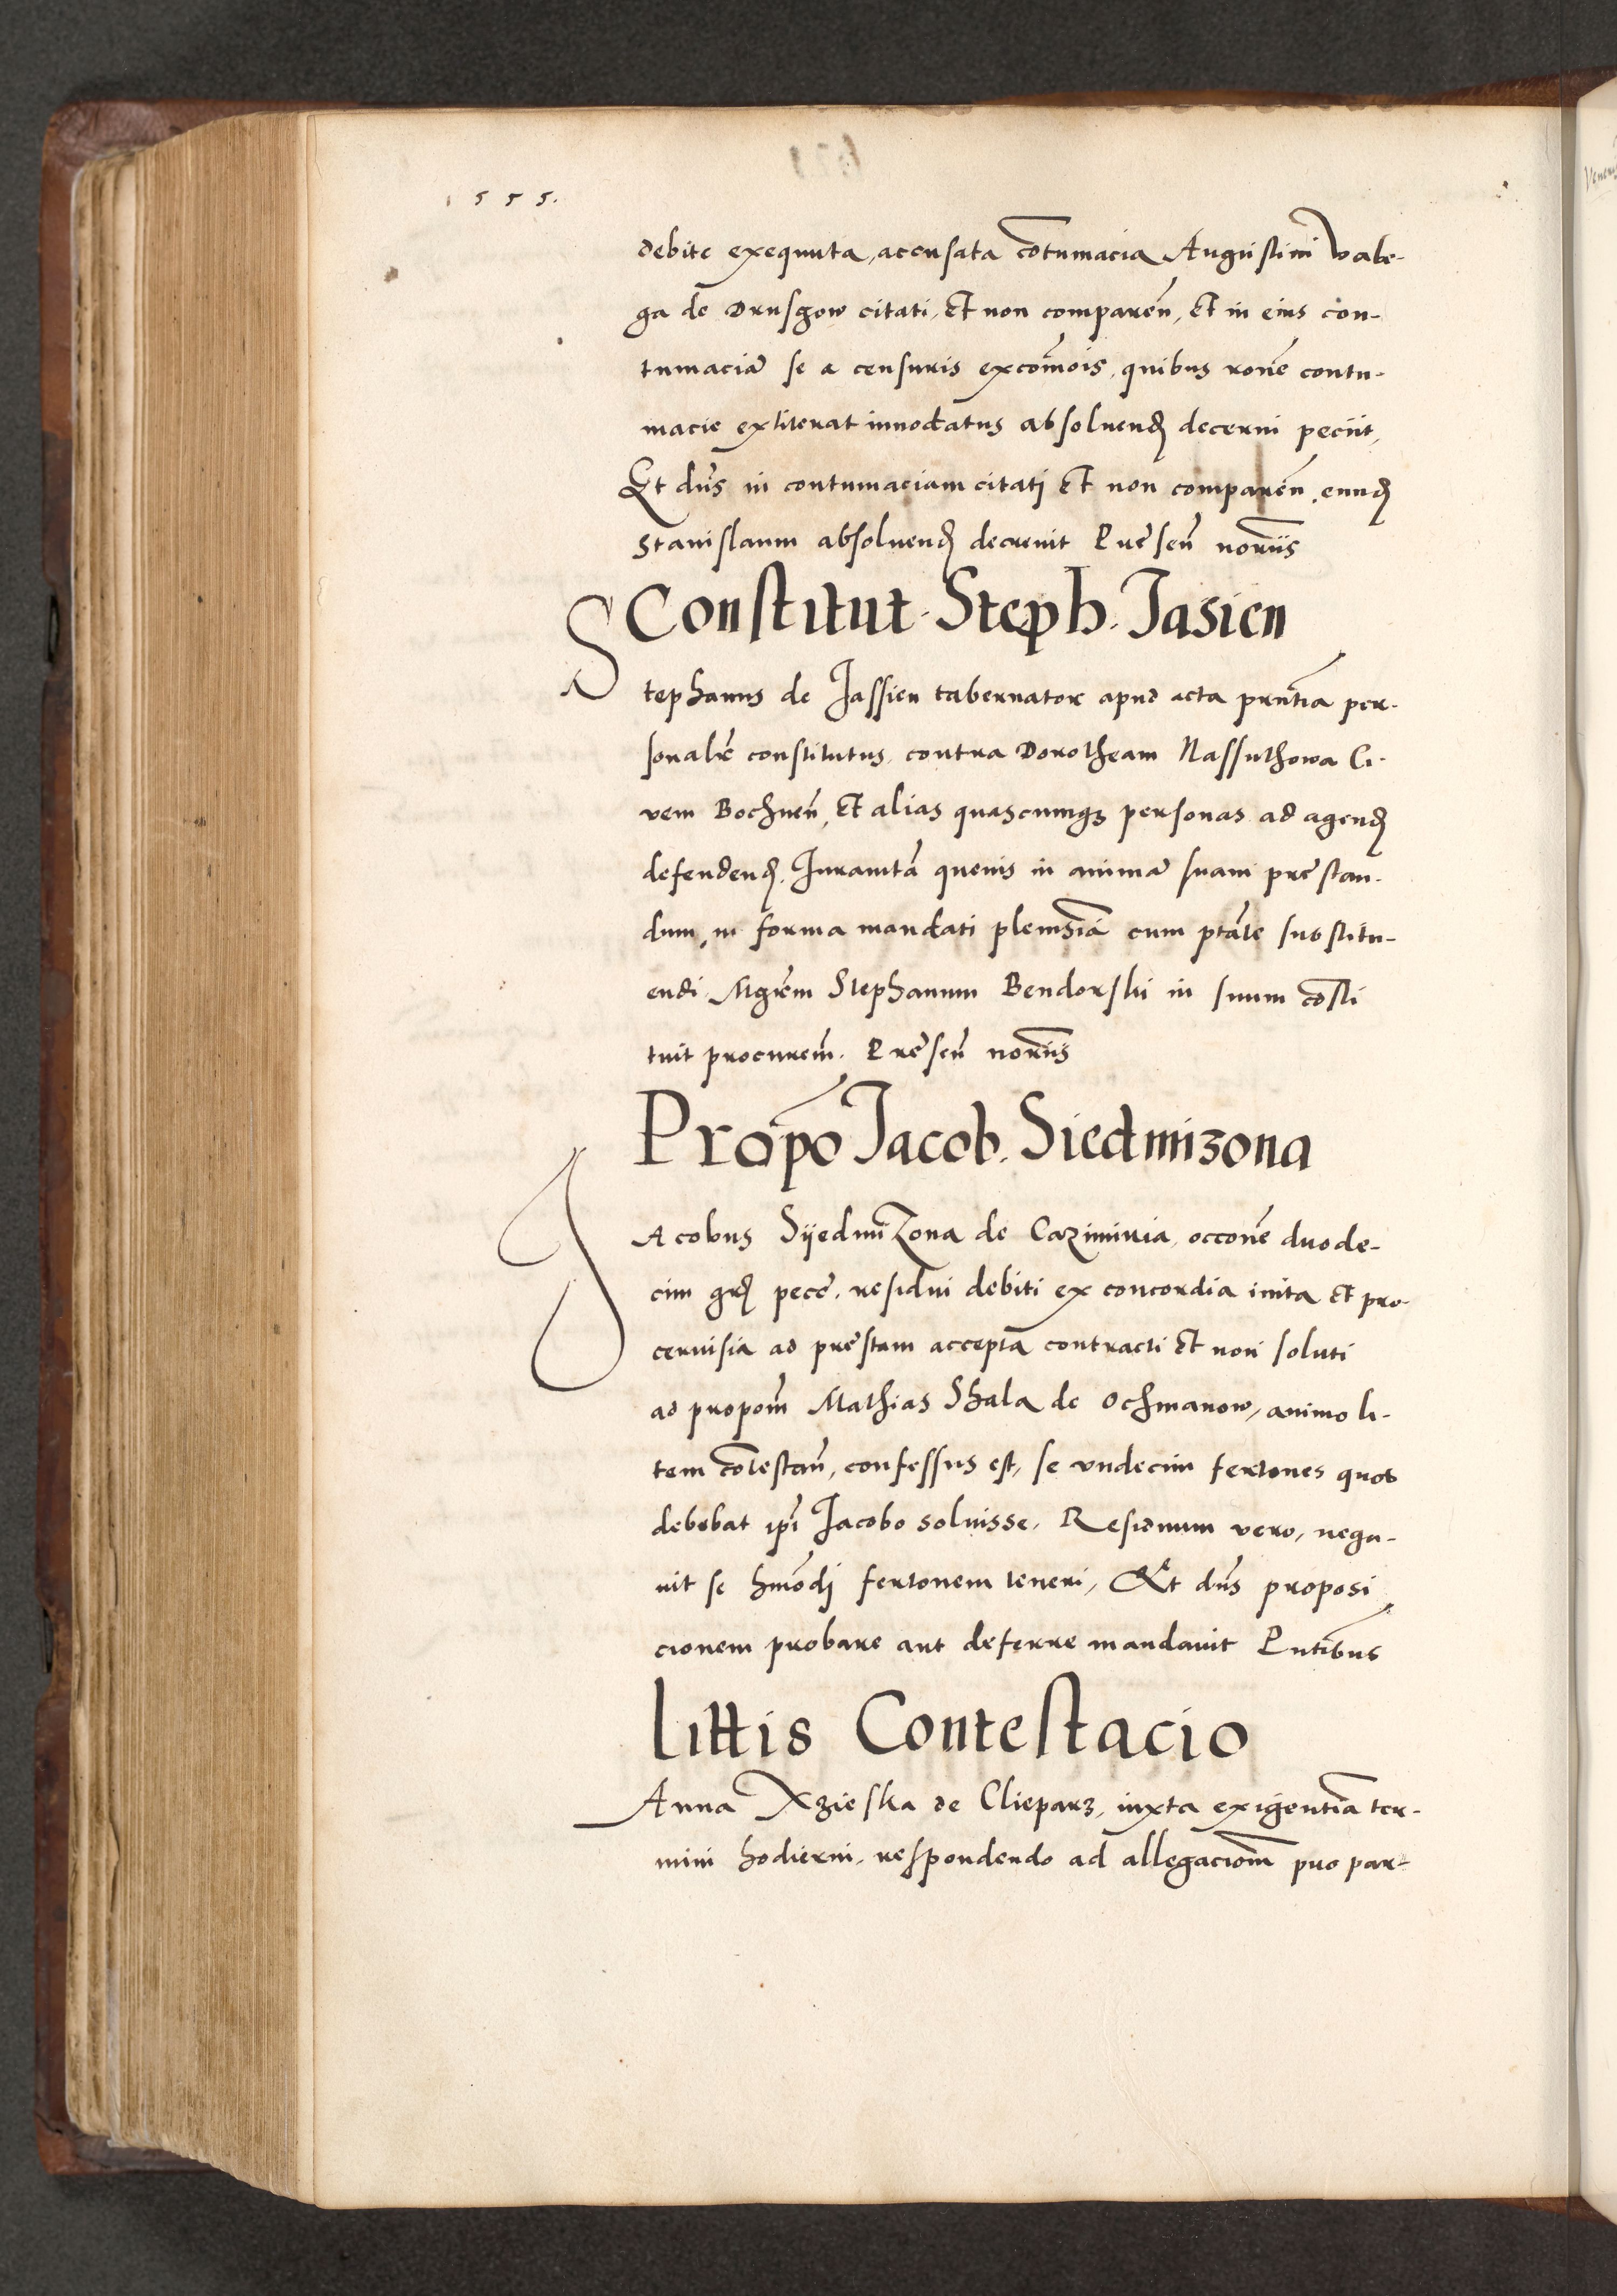 1555.
debite exequuta, accusata cōtumacia Augustini Wabe-
ga de Drusgow citati, Et non comparen̄, Et in eius con-
tumaciā se a censuris excōmois, quibus rōne contu-
macie extiterat innodatus absoluend decerni peciit,
Et dn̄s in contumaciam citati Et non comparen̄, eund
Stanislaum absoluend decreuit Presen̄ nor̄iis
Constitut. Steph. Jasien
Stephanus de Jassien tabernator apud acta prn̄tia per-
sonalr̄ constitutus, contra Dorotheam Nassuthowa Ci-
vem Bochnen̄, Et alias quascumqꝫ personas ad agend
defendend, Juramtā queuis in animā suam prestan-
dum, in forma mandati plenissīa cum ptāte substitu-
endi. Mgr̄em Stephanum Bendorski in suum cōsti
tuit procurem̄. Presen̄ nor̄iis
Propō Jacob. Siedmizona
Jacobus Sÿedmizona de Cazimiria, occōne duode-
cim gr̄ pece, residui debiti ex concordia inita Et pro
ceruisia ad prestam acceptā contracti Et non soluti
ad propom̄ Mathias Skala de Ochmanow, animo li-
tem cōtestan̄, confessus est, se vndecim fertones quos
debebat ip̄i Jacobo soluisse, Residuum vero, nega-
uit se hmōdj fertonem teneri, Et dn̄s proposi
cionem probare aut deferre mandauit Pn̄tibus
Littis Contestacio
Anna Xzieska de Clieparz, iuxta exigentiā ter-
mini hodierni, respondendo ad allegaciom̄ pro par-